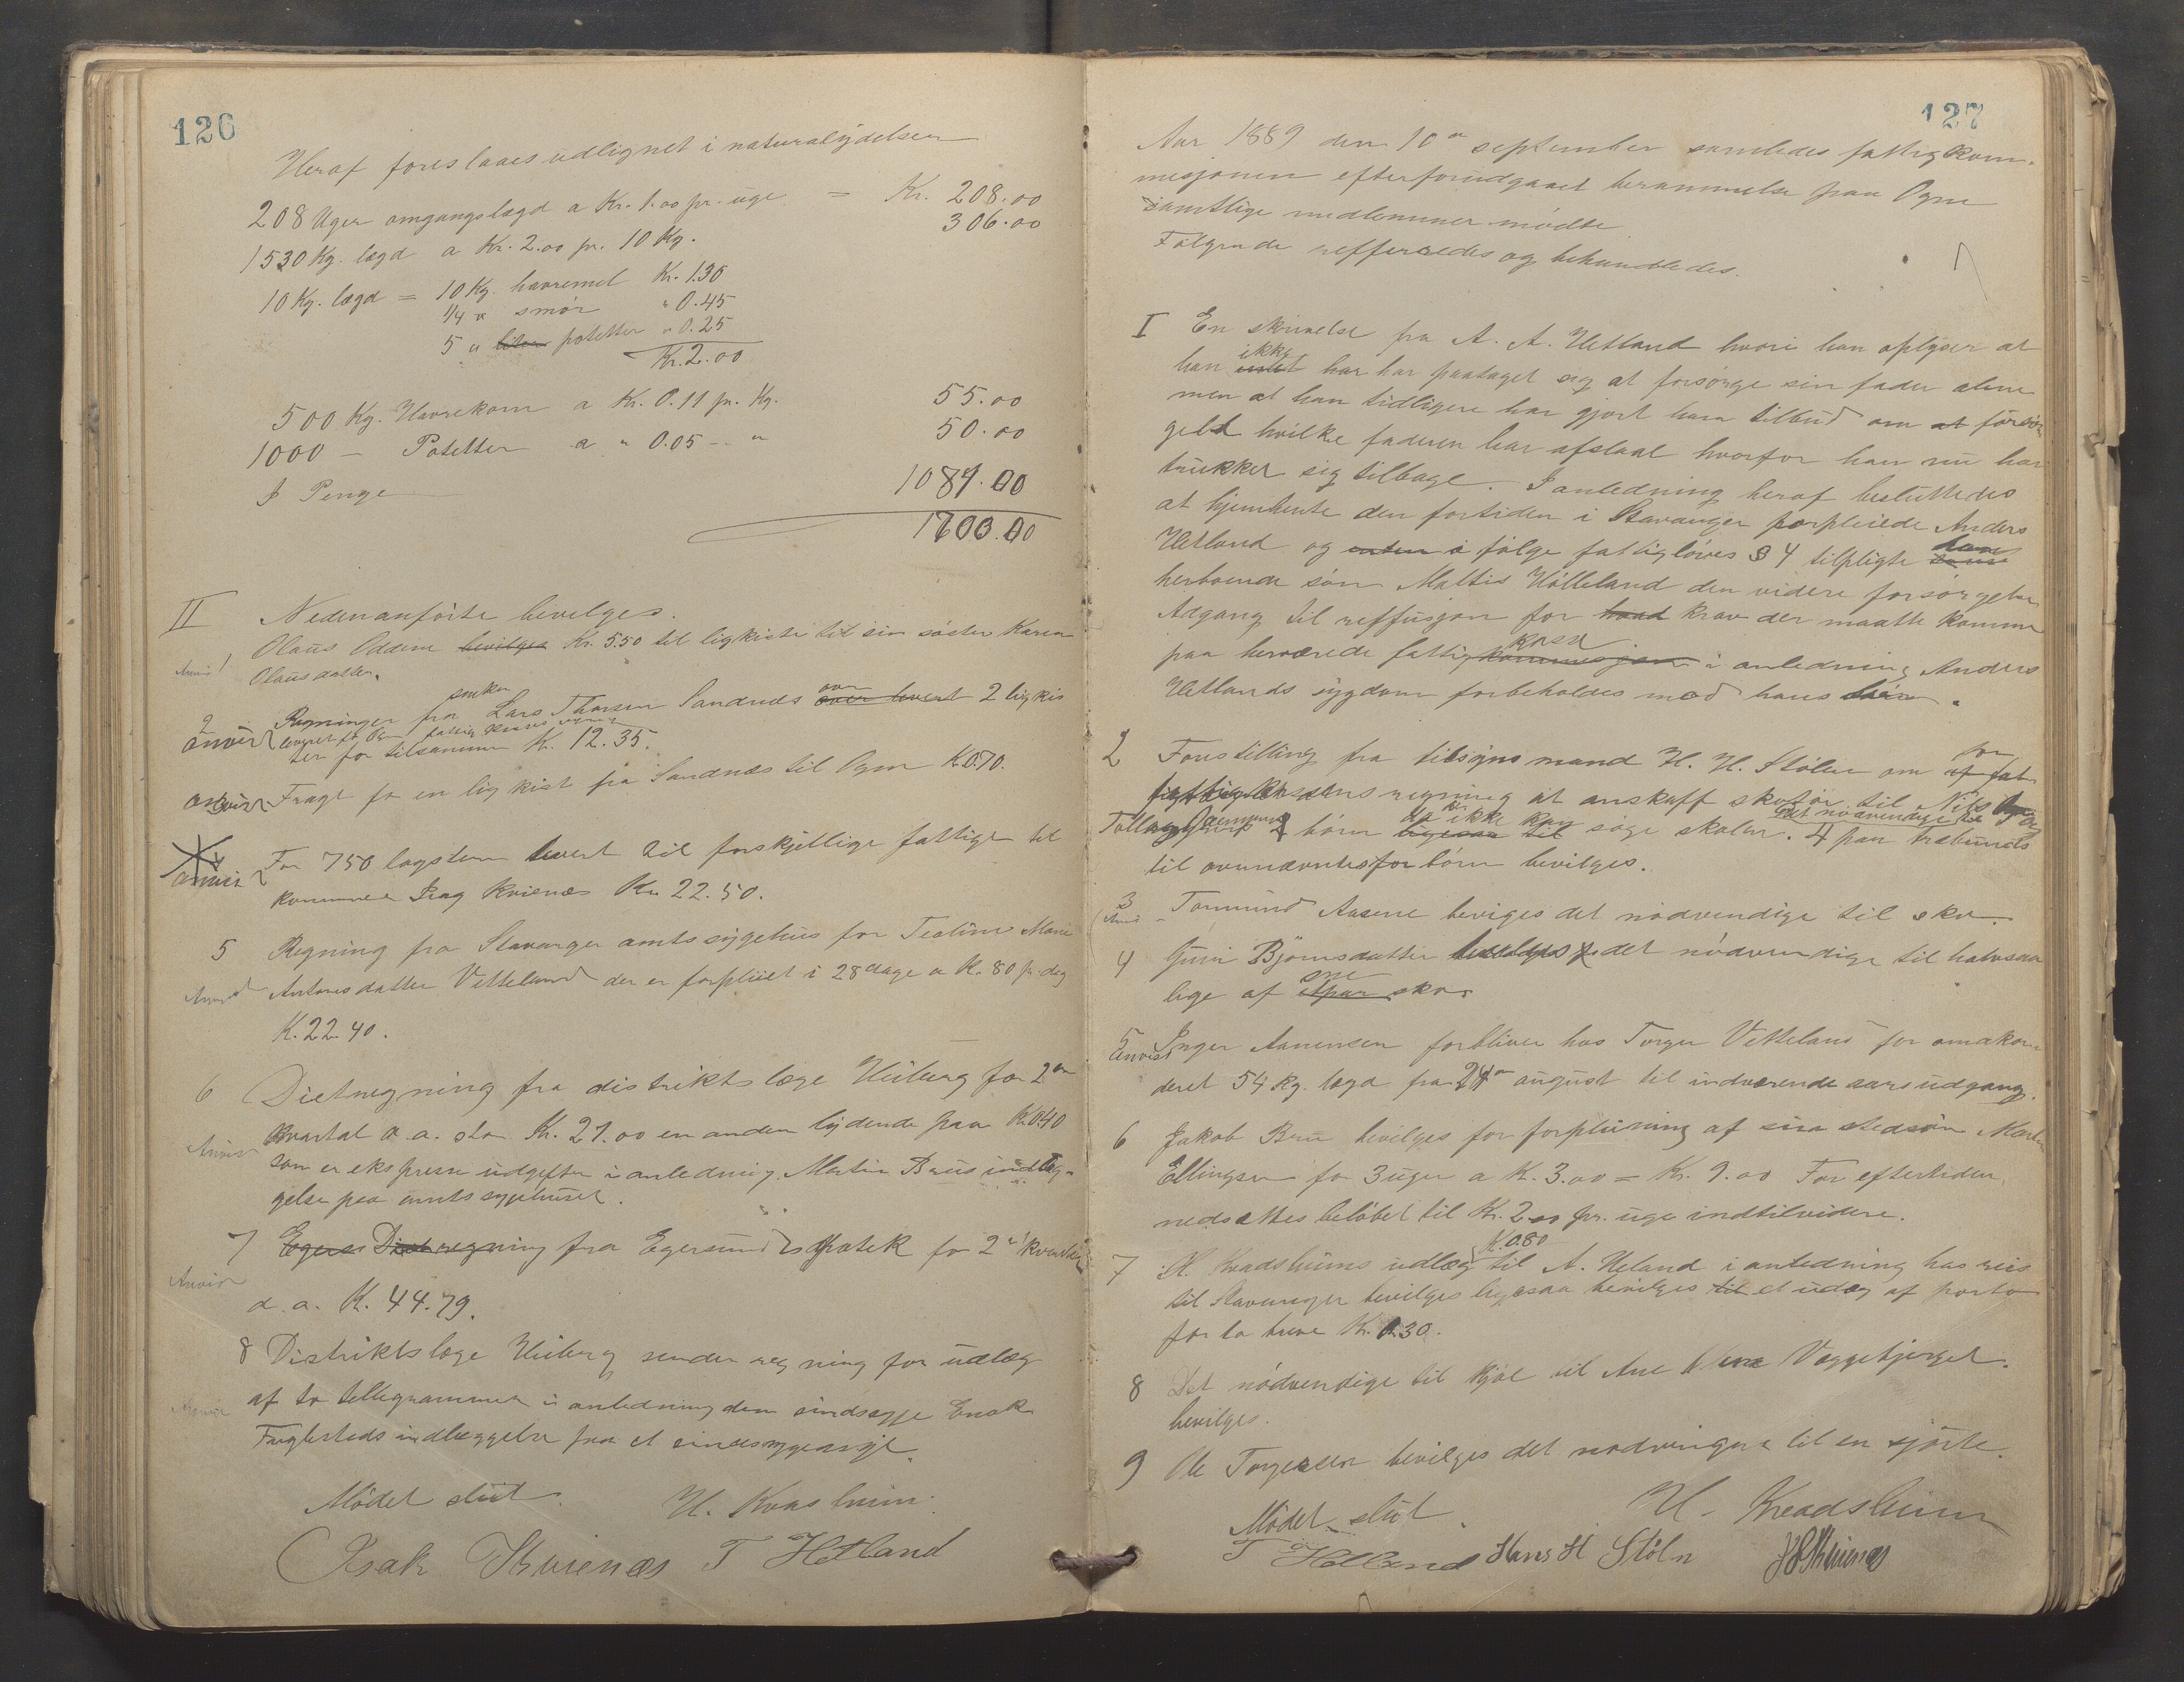 126
Heraf foreslaaes udlignet i naturalydelser
208 Uger omgangslægd a Kr. 1.00 pr. uge = Kr. 208.00
1530 Kg. lægd a Kr. 2.00 pr. 10 Kg. 306.00
10 Kg. lægd = 10 Kg. havremel Kr. 1.30
1/4 " smør " 0.45
5 " liter potetter " 0.25
Kr. 2.00
500 Kg. Havrekorn a Kr. 0.11 pr. Kg. 55.00
1000 — Potetter a " 0.05 - " 50.00
I Penge 1081.00
1700.00
II Nedenanførte bevilges.
1 Olaus Oddene bevilges Kr. 5.50 til ligkiste til sin søster Karen
Olausdatter.
2 Regninger fra snekker Lars Thorsen Sandnæs over levert 2 ligkis
ter for tilsammen Kr. 12.35.
Fragt for en ligkist fra Sandnæs til Ogne K. 0.70.
For 750 lagsten levert til forskjellige fattige til
kommunen Isag Kvienæs Kr. 22.50.
5 Regning fra Stavanger amtssygehus for Teoline Marie
Antonesdatter Vetteland der er forpleiet i 28 dage a K. 80 pr. dag
K. 22.40.
6 Dietregning fra distriktslæge Huiberg for 2den
kvartal d. a. stor Kr. 21.00 en anden lydende paa K. 0.40
som er ekspresse udgifter i anledning Martin Brues indlæg-
gelse paa amtssygehuset.
7 Egers Dietregning fra Egersunds Apotek for 2det kvartal
d. a. K. 44.79.
8 Distriktslæge Huiberg sender regning for udlæg
af to tellegrammer i anledning den sindsyge Enok
Fuglesteds indlæggelse paa et sindssygeasyl.
Mødet slut. H. Kvasheim.
Isak Kvienæs T Hetland
127
Aar 1889 den 10de september samledes fattigkom-
mesjonen efter forudgaaet berammelse paa Ogne
samtlige medlemmer mødte
Følgende refferredes og behandledes.
I En skrivelse fra A. A. Hetland hvori han oplyser at
han intet ikke har har paataget sig at forsørge sin fader alene
men at han tidligere har gjort ham tilbud om at forsør
gelse hvilke faderen har afslaat hvorfor han nu har
trukket sig tilbage. I anledning heraf besluttedes
at hjemhente den fortiden i Stavanger forpleiede Anders
Hetland og i følge fattiglovs § 4 tilpligte hans
herboende søn Mattis Hølleland den videre forsørgelse
Adgang til reffusjon for hvad krav der maatte komme
paa herværede fattigkommesjon kasse i anledning Anders
Hetlands sygdom forbeholdes mod hans søn.
2 Forestilling fra tilsynsmand H. H. Stølen om at for fat
fattigkassens regning at anskaffe skotøi til Nils
2 børn da ikke kan søge skolen. Det nødvendige til 4 par træbunds
til ovennævntes for børn bevilges.
3 Tormund Aasene beviges det nødvendige til sko.
4 Guri Bjørnsdatter bevilges det nødvendige til halvsaa
lige af et par sne sko.
5 Inger Aanensen forbliver hos Torger Vetteland for omakor
deret 54 Kg. lægd fra 24de august til indværende aars udgang.
6 Jakob Brue bevilges for forpleining af sin stedsøn Martin
Ellingsen for 3 uger a K. 3.00 = Kr. 9.00 For eftertiden
nedsættes beløbet til Kr. 2.00 pr. uge indtilvidere.
7 H. Kvadsheims udlæg K. 0.80 til A. Heland i anledning has reis
til Stavanger bevilges ligesaa bevilges til et udæg af porto
for to breve Kr. 0.30.
8 Det nødvendige til kjol til Ane Væggebjerget.
bevilges.
9 Ole Torgersen bevilges det nødvendige til en sjorte.
Mødet slut. H. Kvadsheim
T Hetland Hans H Støln